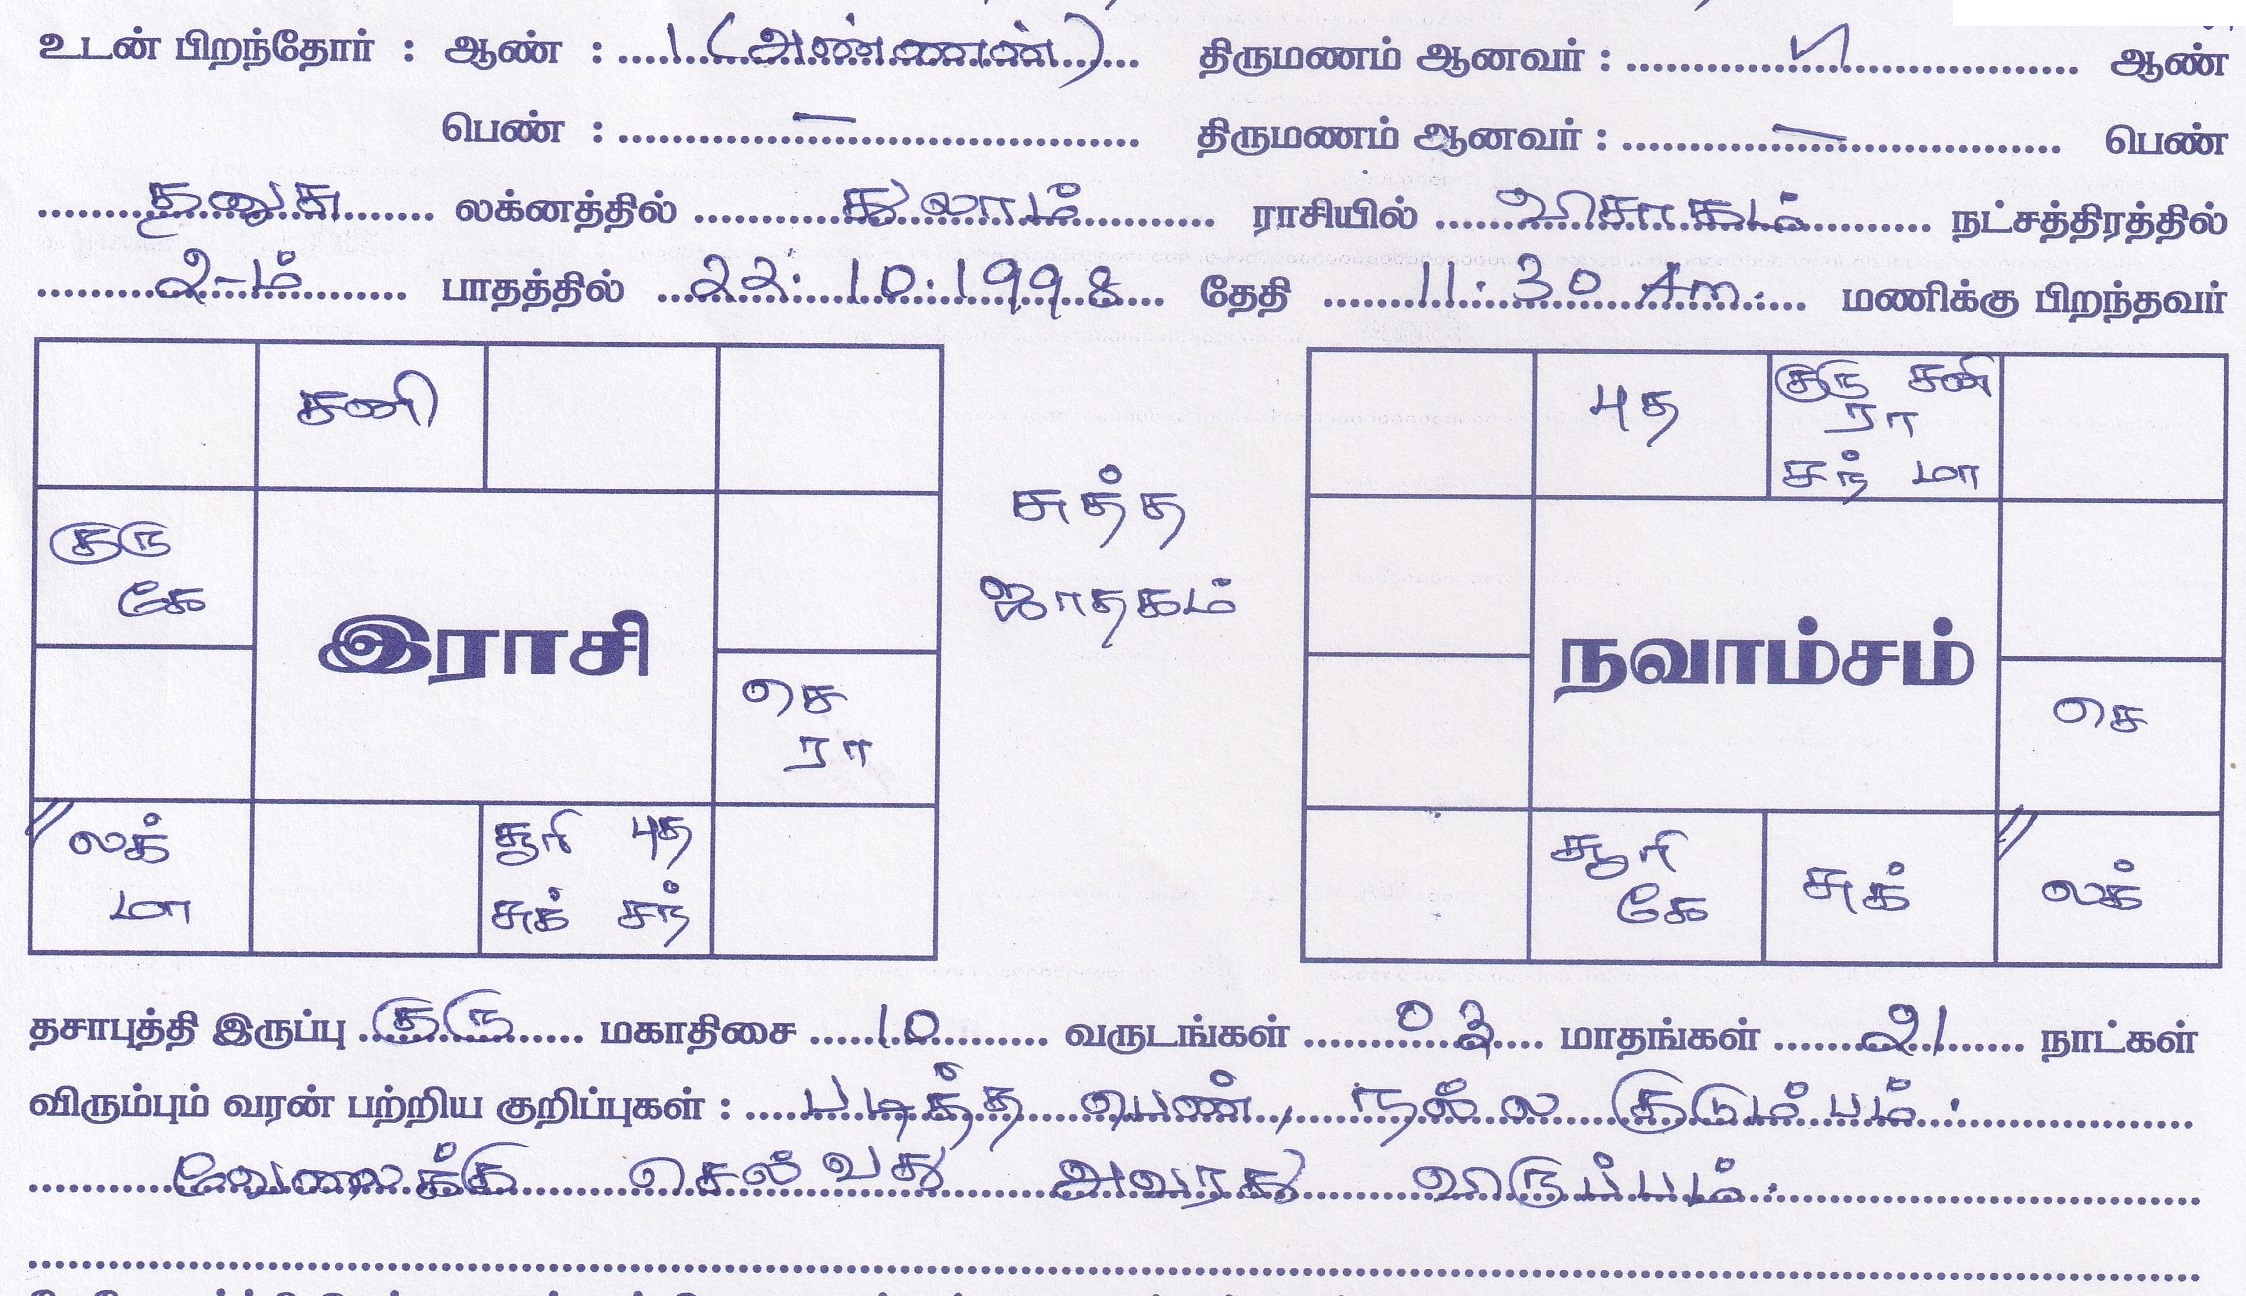 உடன் பிறந்தோர் : ஆண் : 1 (அண்ணன்) திருமணம் ஆனவர் : ஆண்
பெண் : – திருமணம் ஆனவர் : – பெண்
தனுசு லக்னத்தில் துலாம் ராசியில் விசாகம் நட்சத்திரத்தில்
2-ம் பாதத்தில் 22.10.1998 தேதி 11.30 Am. மணிக்கு பிறந்தவர்
சனி
குரு
கே
இராசி
செ
ரா
லக்
மா
சூரி புத
சுக் சந்
சுத்த
ஜாதகம்
புத
குரு சனி
ரா
சந் மா
நவாம்சம்
செ
சூரி
கே
சுக்
லக்
தசாபுத்தி இருப்பு குரு மகாதிசை 10 வருடங்கள் 03 மாதங்கள் 21 நாட்கள்
விரும்பும் வரன் பற்றிய குறிப்புகள் : படித்த பெண், நல்ல குடும்பம்.
வேலைக்கு செல்வது அவரது விருப்பம்.